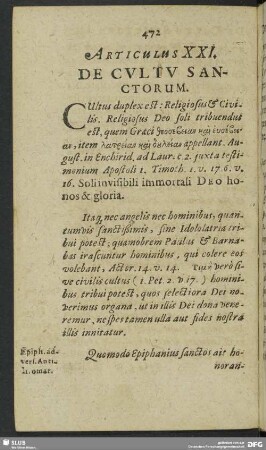 472
ARTICULUS XXI.
DE CVLTV SAN-
CTORUM.
CUltus duplex est: Religiosus & Civi-
lis. Religiosus Deo soli tribuendus
est, quem Græci θρησκείαν καὶ εὐσέβει-
αν, item λατρείαν καὶ δουλείαν appellant. Au-
gust. in Enchirid. ad Laur. c. 2. juxta testi-
monium Apostoli 1. Timoth. 1. v. 17. 6. v.
16. Soli invisibili immortali DEO ho-
nos & gloria.
Itaq, nec angelis nec hominibus, quan-
tumvis sanctissimis, sine Idololatria tri-
bui potest; quamobrem Paulus & Barna-
bas irascuntur hominibus, qui colere eos
volebant; Actor. 14. v. 14. Τιμὴ verò si-
ve civilis cultus (1. Pet. 2. v 17.) homini-
bus tribui potest, quos selectiora Dei no-
verimus organa, ut in illis Dei dona vene-
remur, ne spes tamen ulla aut fides nostra
illis innitatur.
Epiph. ad-
vers. Anti-
di comar.
Quomodo Epiphanius sanctos ait ho-
noran-
SLUB